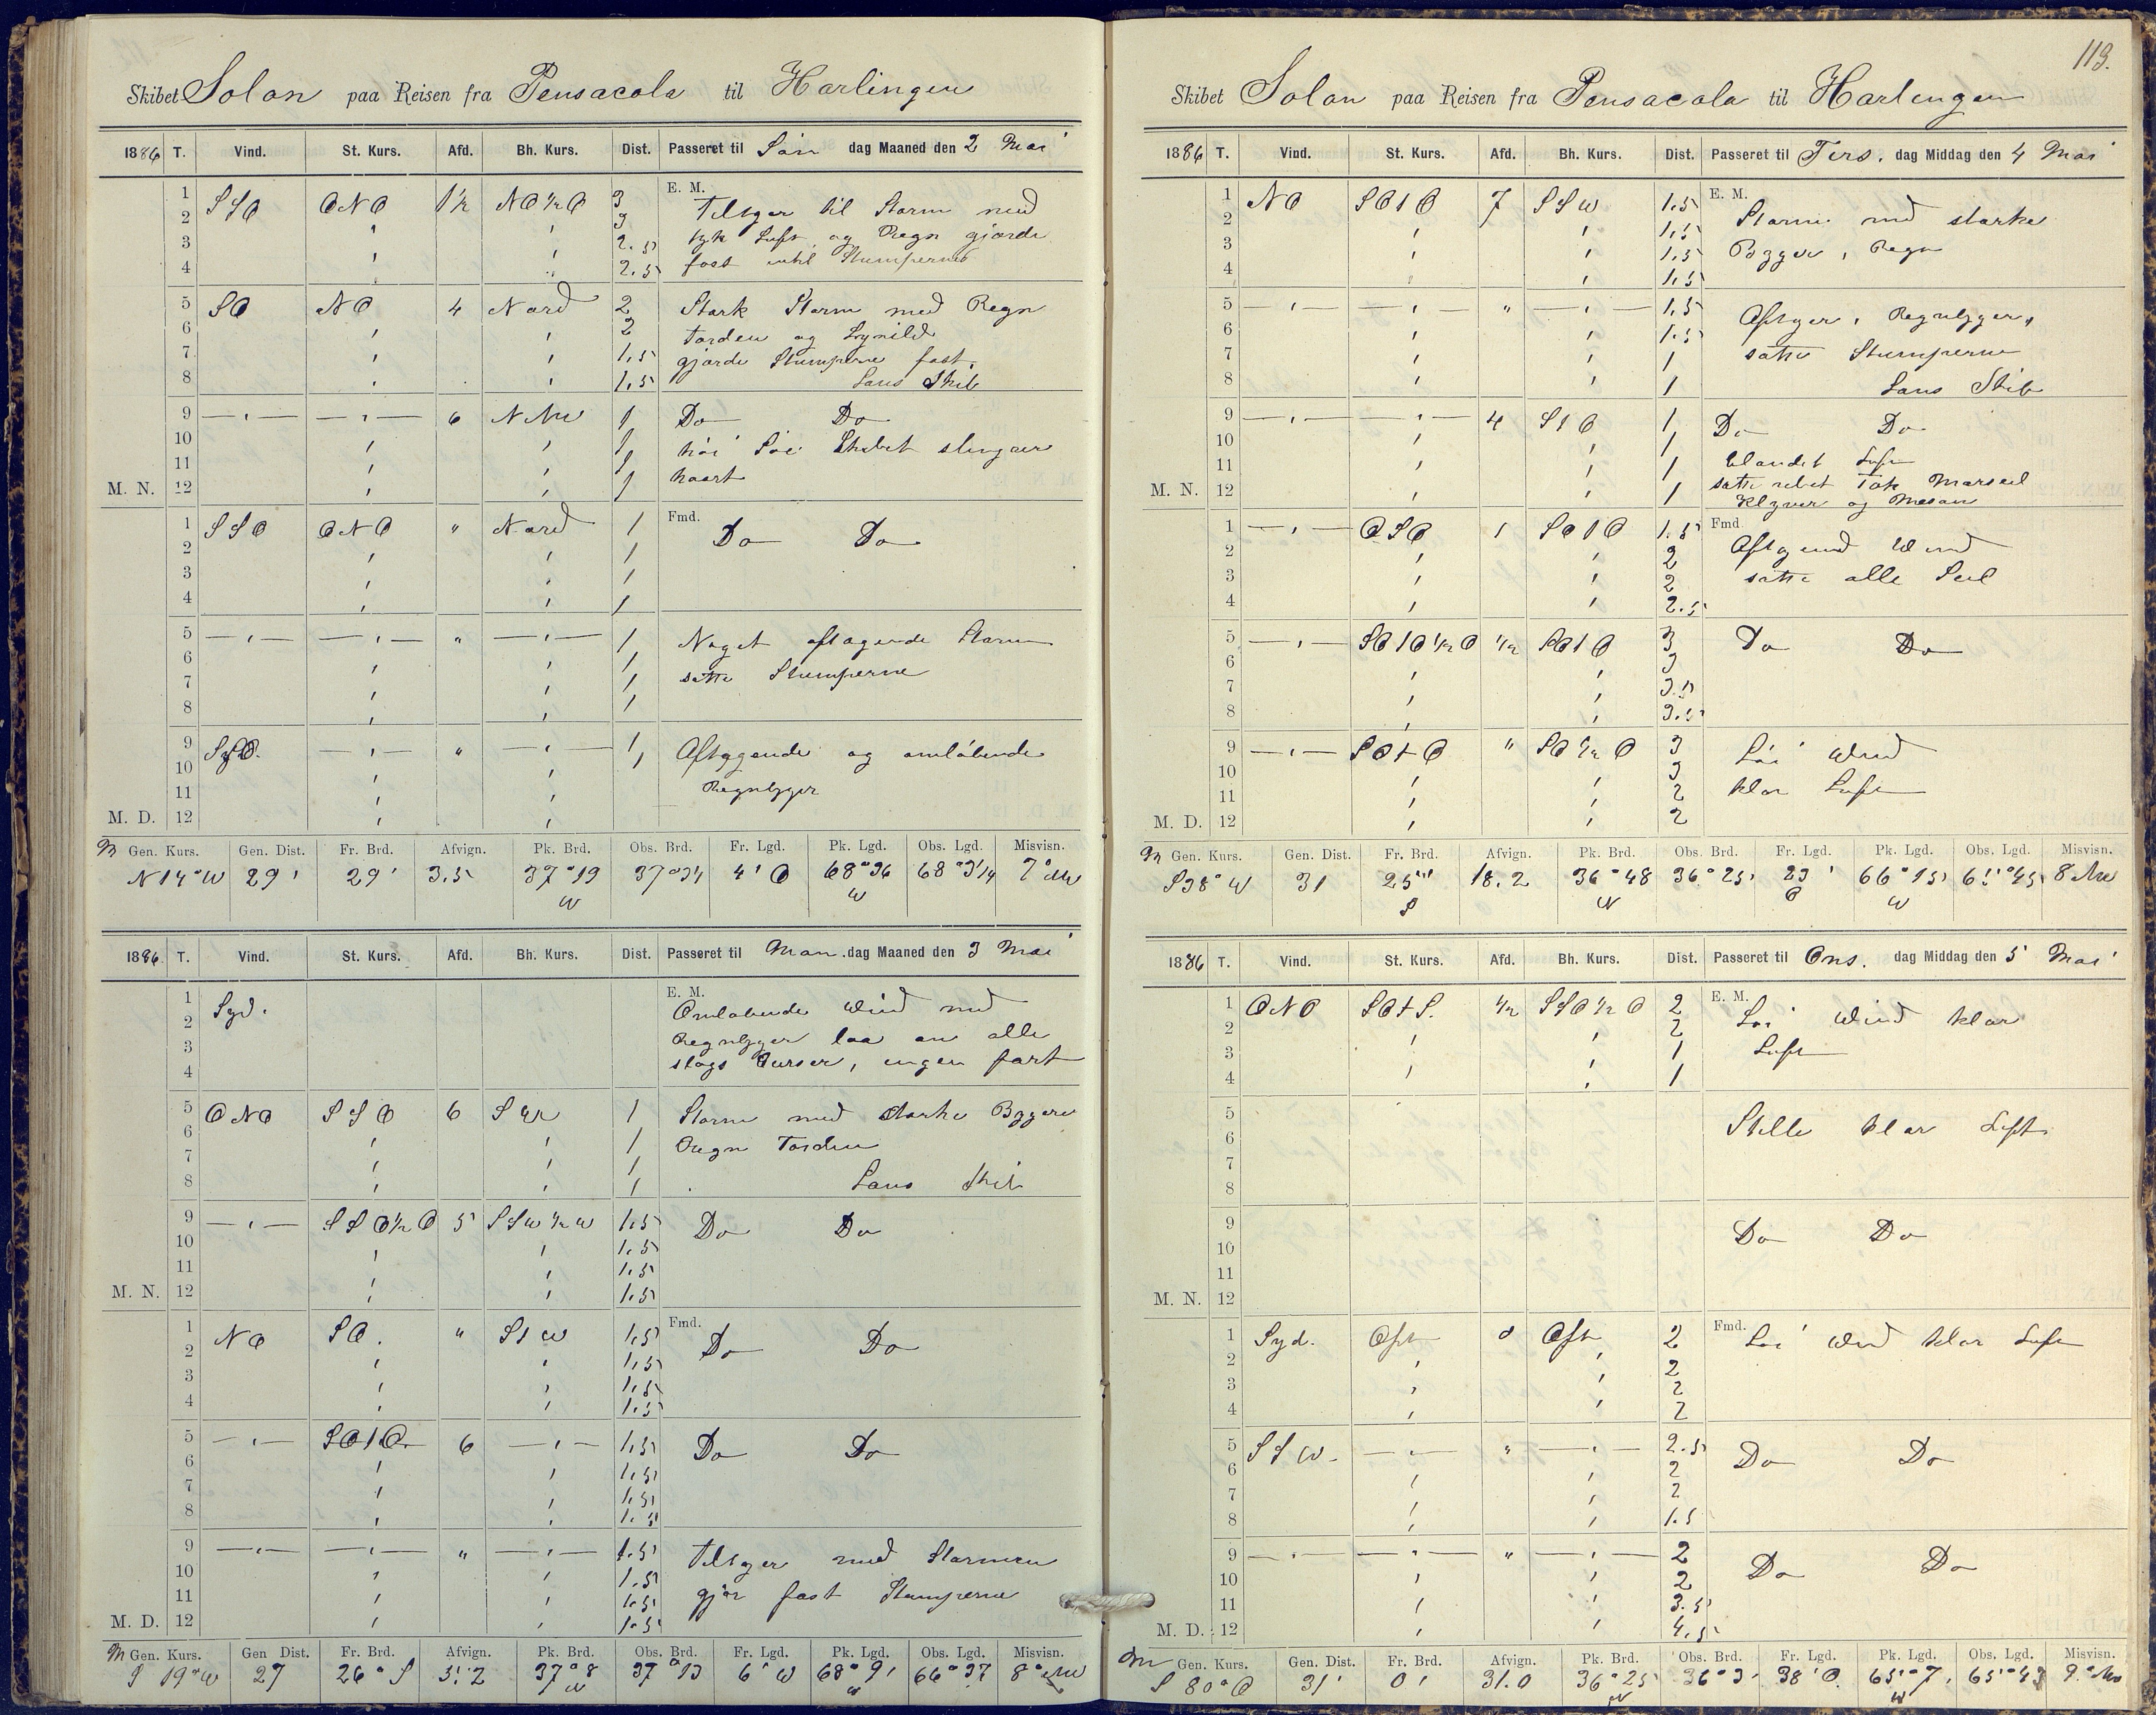 Skibet Solon paa Reisen fra Pensacola til Harlingen
1886 T. Vind. St. Kurs. Afd. Bh. Kurs. Dist. Passeret til Søn dag Maaned den 2 Mai
E. M.
1 SSO ONO 1½ NO½O 3 Tiltger til Storm med
2 " " 3 tyk Luft og Regn gjorde
3 " " 2.5 fast intil Stumperne
4 " " 2.5
5 SO NO 4 Nord 2 Stærk Storm med Regn
6 " " 2 Torden og Lynild
7 " " 1,5 gjorde Stumperne fast.
8 " " 1.5 Lens Skib
9 — " — — " — 6 NNW 1 Do Do
10 " " 1 høi Søi Skibet slingrer
11 " " 1 haart
M. N. 12 " " 1
Fmd.
1 SSO ONO " Nord 1 Do Do
2 " " 1
3 " " 1
4 " " 1
5 — " — — " — " — " — 1 Noget aftagende Storm
6 " " 1 satte Stumperne
7 " " 1
8 " " 1
9 Syd. — " — " — " — 1 Aftygende og omløbende
10 " " 1 Regnbyger
11 " "
M. D. 12 " "
M Gen. Kurs. Gen. Dist. Fr. Brd. Afvign. Pk. Brd. Obs. Brd. Fr. Lgd. Pk. Lgd. Obs. Lgd. Misvisn.
N 14° W 29' 29' 3.5 37°19 37°34 4' O 68°36 68°34 7° NW
W W
1886 T. Vind. St. Kurs. Afd. Bh. Kurs. Dist. Passeret til Man. dag Maaned den 3 Mai
E. M.
1 Syd. Omløbende Wind med
2 Regnbyger laa an alle
3 slags Curser, ingen fart
4
5 ONO SSO 6 SW 1 Storm med stærke Bygere
6 " " 1 Regn Torden
7 " " 1
8 " " 1 Lens Skib
9 — " — SSO½O 5 SSW½W 1.5 Do Do
10 " " 1.5
11 " " 1.5
M. N. 12 " " 1.5
Fmd.
1 NO SO. " S1W 1.5 Do Do
2 " " 1,5
3 " " 1.5
4 " " 1.5
5 — " — SO1O. 6 — " — 1.5 Do Do
6 " " 1.5
7 " " 1.5
8 " " 1.5
9 — " — — " — " — " — 1.5 Tiltger med Stormen
10 " " 1.5
11 " " 1.5 gjør fast Stumperne
M. D. 12 " " 1.5
M Gen. Kurs. Gen Dist. Fr. Brd. Afvign. Pk. Brd. Obs. Brd. Fr. Lgd. Pk. Lgd. Obs. Lgd. Misvisn.
S 19° W 27 26° S 5.2 37°8 37°13 6' W 68°9' 66°37 8° NW
W W
113.
Skibet Solon paa Reisen fra Pensacola til Harlingen
1886 T. Vind. St. Kurs. Afd. Bh. Kurs. Dist. Passeret til Tirs. dag Middag den 4 Mai
E. M.
1 NO SO1O 7 SSW 1.5 Storm med stærke
2 " " 1.5
3 " " 1.5 Bygger, Regn
4 " " 1.5
5 — " — — " — " — " — 1.5 Aftger, Regnbyger,
6 " " 1.5
7 " " 1 satte Stumperne
8 " " 1 Lens Skib
9 — " — " — 4 S1O 1 Do Do
10 " " 1
11 " " 1 blandet Luft
M. N. 12 " " 1 satte rebet Tok Marseil
Klyver og Mesan
Fmd
1 — " — OSO 1 SO1O 1.5 Aftgend Wind
2 " " 2
3 " " 2 satte alle Seil
4 " " 2.5
5 — " — SO1O½O ½ SO1O 3 Do Do
6 " " 3
7 " " 3.5
8 " " 3.5
9 — " — SO1O " SO½O 3 Løi Wind
10 " " 3
11 " " 2 klar Luft
M. D. 12 " " 2
M Gen. Kurs. Gen. Dist. Fr. Brd. Afvign. Pk. Brd. Obs. Brd. Fr. Lgd. Pk. Lgd. Obs. Lgd. Misvisn.
S38° W 31 25' 18.2 36°48 36°25' 23' 66°15 65°45 8 NW
S N O W
1886 T. Vind. St. Kurs. Afd. Bh. Kurs. Dist. Passeret til Ons. dag Middag den 5 Mai
E. M.
1 ONO SO1S. ½ SSO½O 2 Løi Wind klar
2 " 2
3 " 1 Luft
4 " " 1
5 Stille klar Luft
6
7
8
9 Do Do
10
11
M. N. 12
Fmd.
1 Syd. Ost 0 Ost 2 Løi Wind klar Luft
2 " " 2
3 " " 2
4 " " 2
5 SSW. — " — " — " — 2.5 Do Do
6 " " 2
7 " " 2
8 " " 1.5
9 — " — — " — " — " — 2 Do Do
10 " " 2
11 " " 3.5
M. D. 12 " " 4.5
M Gen. Kurs. Gen. Dist. Fr. Brd. Afvign. Pk. Brd. Obs. Brd. Fr. Lgd. Pk. Lgd. Obs. Lgd. Misvisn.
S 80° O 31' 0' 31.0 36°25 36°3' 38' O. 65°7' 65°43 9° NW
N W